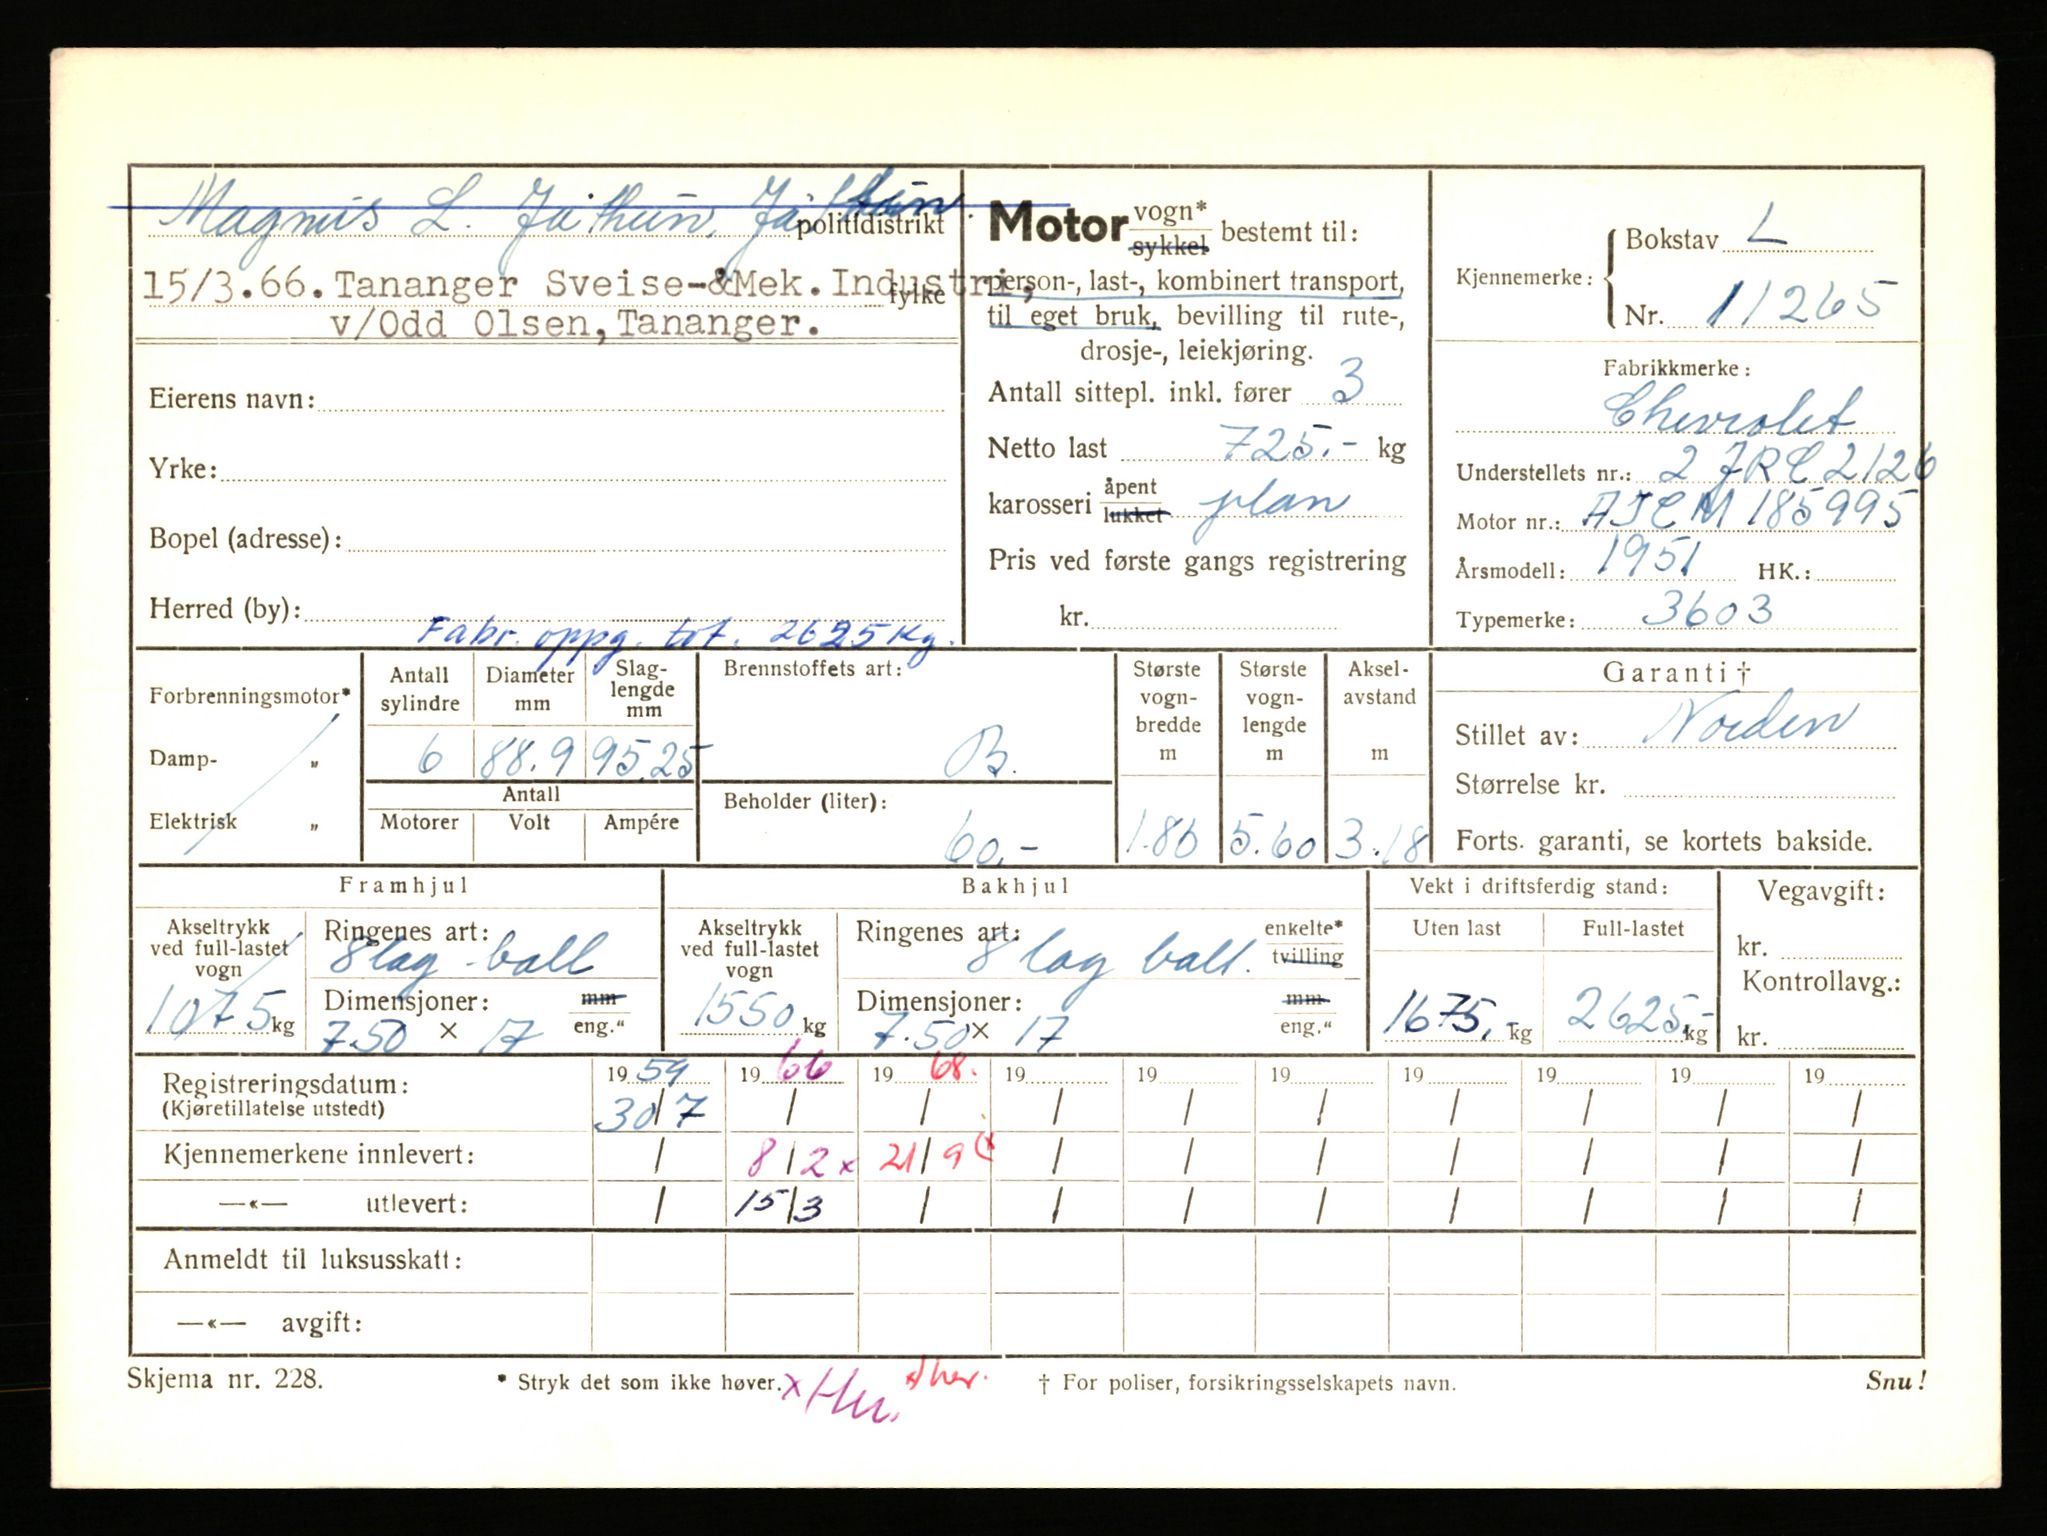 Magnus L. Jåthun, Jåthun.
politidistrikt
15/3.66. Tananger Sveise-&Mek. Industri,
fylke
v/Odd Olsen, Tananger.
Eierens navn:
Yrke:
Bopel (adresse):
Herred (by):
Fabr. oppg. tot. 2625 Kg.
Motor vogn* sykkel bestemt til:
person-, last-, kombinert transport,
til eget bruk, bevilling til rute-,
drosje-, leiekjøring.
Antall sittepl. inkl. fører 3
Netto last 725.- kg
karosseri åpent lukket plan
Pris ved første gangs registrering
kr.
Kjennemerke: Bokstav L
Nr. 11265
Fabrikkmerke:
Chevrolet
Understellets nr.: 2 JRC 2126
Motor nr.: AJCM 185995
Årsmodell: 1951 HK.:
Typemerke: 3603
Forbrenningsmotor*
Damp- „
Elektrisk „
Antall sylindre 6
Diameter mm 88.9
Slag-lengde mm 95.25
Antall
Motorer Volt Ampére
Brennstoffets art: B.
Beholder (liter): 60.-
Største vogn-bredde m 1.80
Største vogn-lengde m 5.60
Aksel-avstand m 3.18
Garanti †
Stillet av: Norden
Størrelse kr.
Forts. garanti, se kortets bakside.
Framhjul
Akseltrykk ved full-lastet vogn 1075 kg
Ringenes art: 8 lag ball
Dimensjoner: mm
7.50 × 17 eng."
Bakhjul
Akseltrykk ved full-lastet vogn 1550 kg
Ringenes art: 8 lag ball. enkelte* tvilling
Dimensjoner: mm
7.50 × 17 eng."
Vekt i driftsferdig stand:
Uten last Full-lastet
1675,- kg 2625,- kg
Vegavgift:
kr.
Kontrollavg.:
kr.
Registreringsdatum: 19 59 19 66 19 68. 19 19 19 19 19 19 19
(Kjøretillatelse utstedt) 30/7 / / / / / / / / /
Kjennemerkene innlevert: / 8/2 x 21/9 (x / / / / / / /
—«— utlevert: / 15/3 / / / / / / / /
Anmeldt til luksusskatt:
—«— avgift:
Skjema nr. 228.
* Stryk det som ikke høver.
† For poliser, forsikringsselskapets navn.
Snu!